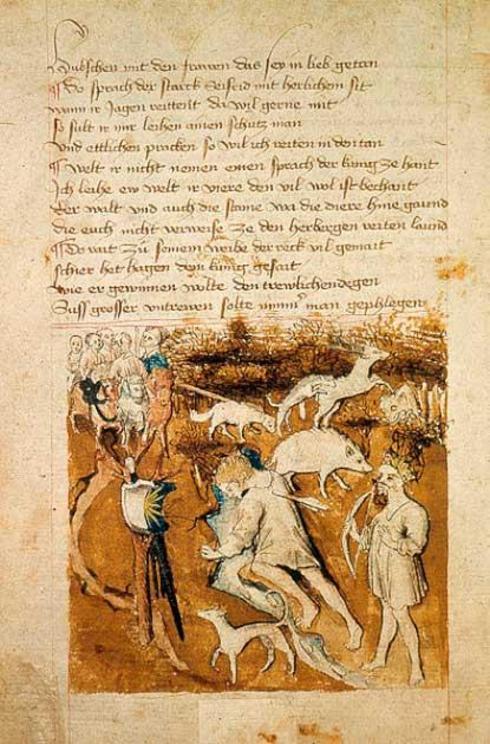 Hubschen mit den frawen das sey in lieb getan
¶ Do sprach der starck Seifrid mit herlichem sit
wann ir Jagen reittent da wil gerne mit
so sult ir mir leihen ainen schutz man
vnd ettlichen pracken so wil ich reiten in den tan
¶ Welt ir nicht nemen einen sprach der kunig ze hant
Ich leihe ew welt ir viere den vil wol ist bechant
Der walt vnd auch die staine wa die diere hine gaund
die euch nicht verweise ze den herbergen reiten laund
¶ Do rait zu seinem weibe der reck vil gemait
schier het hagen dem kunig gesait
wie er gewinnen wolte den trewlichen degen
Suss grosser vntrewen solte nimmer man gephlegen